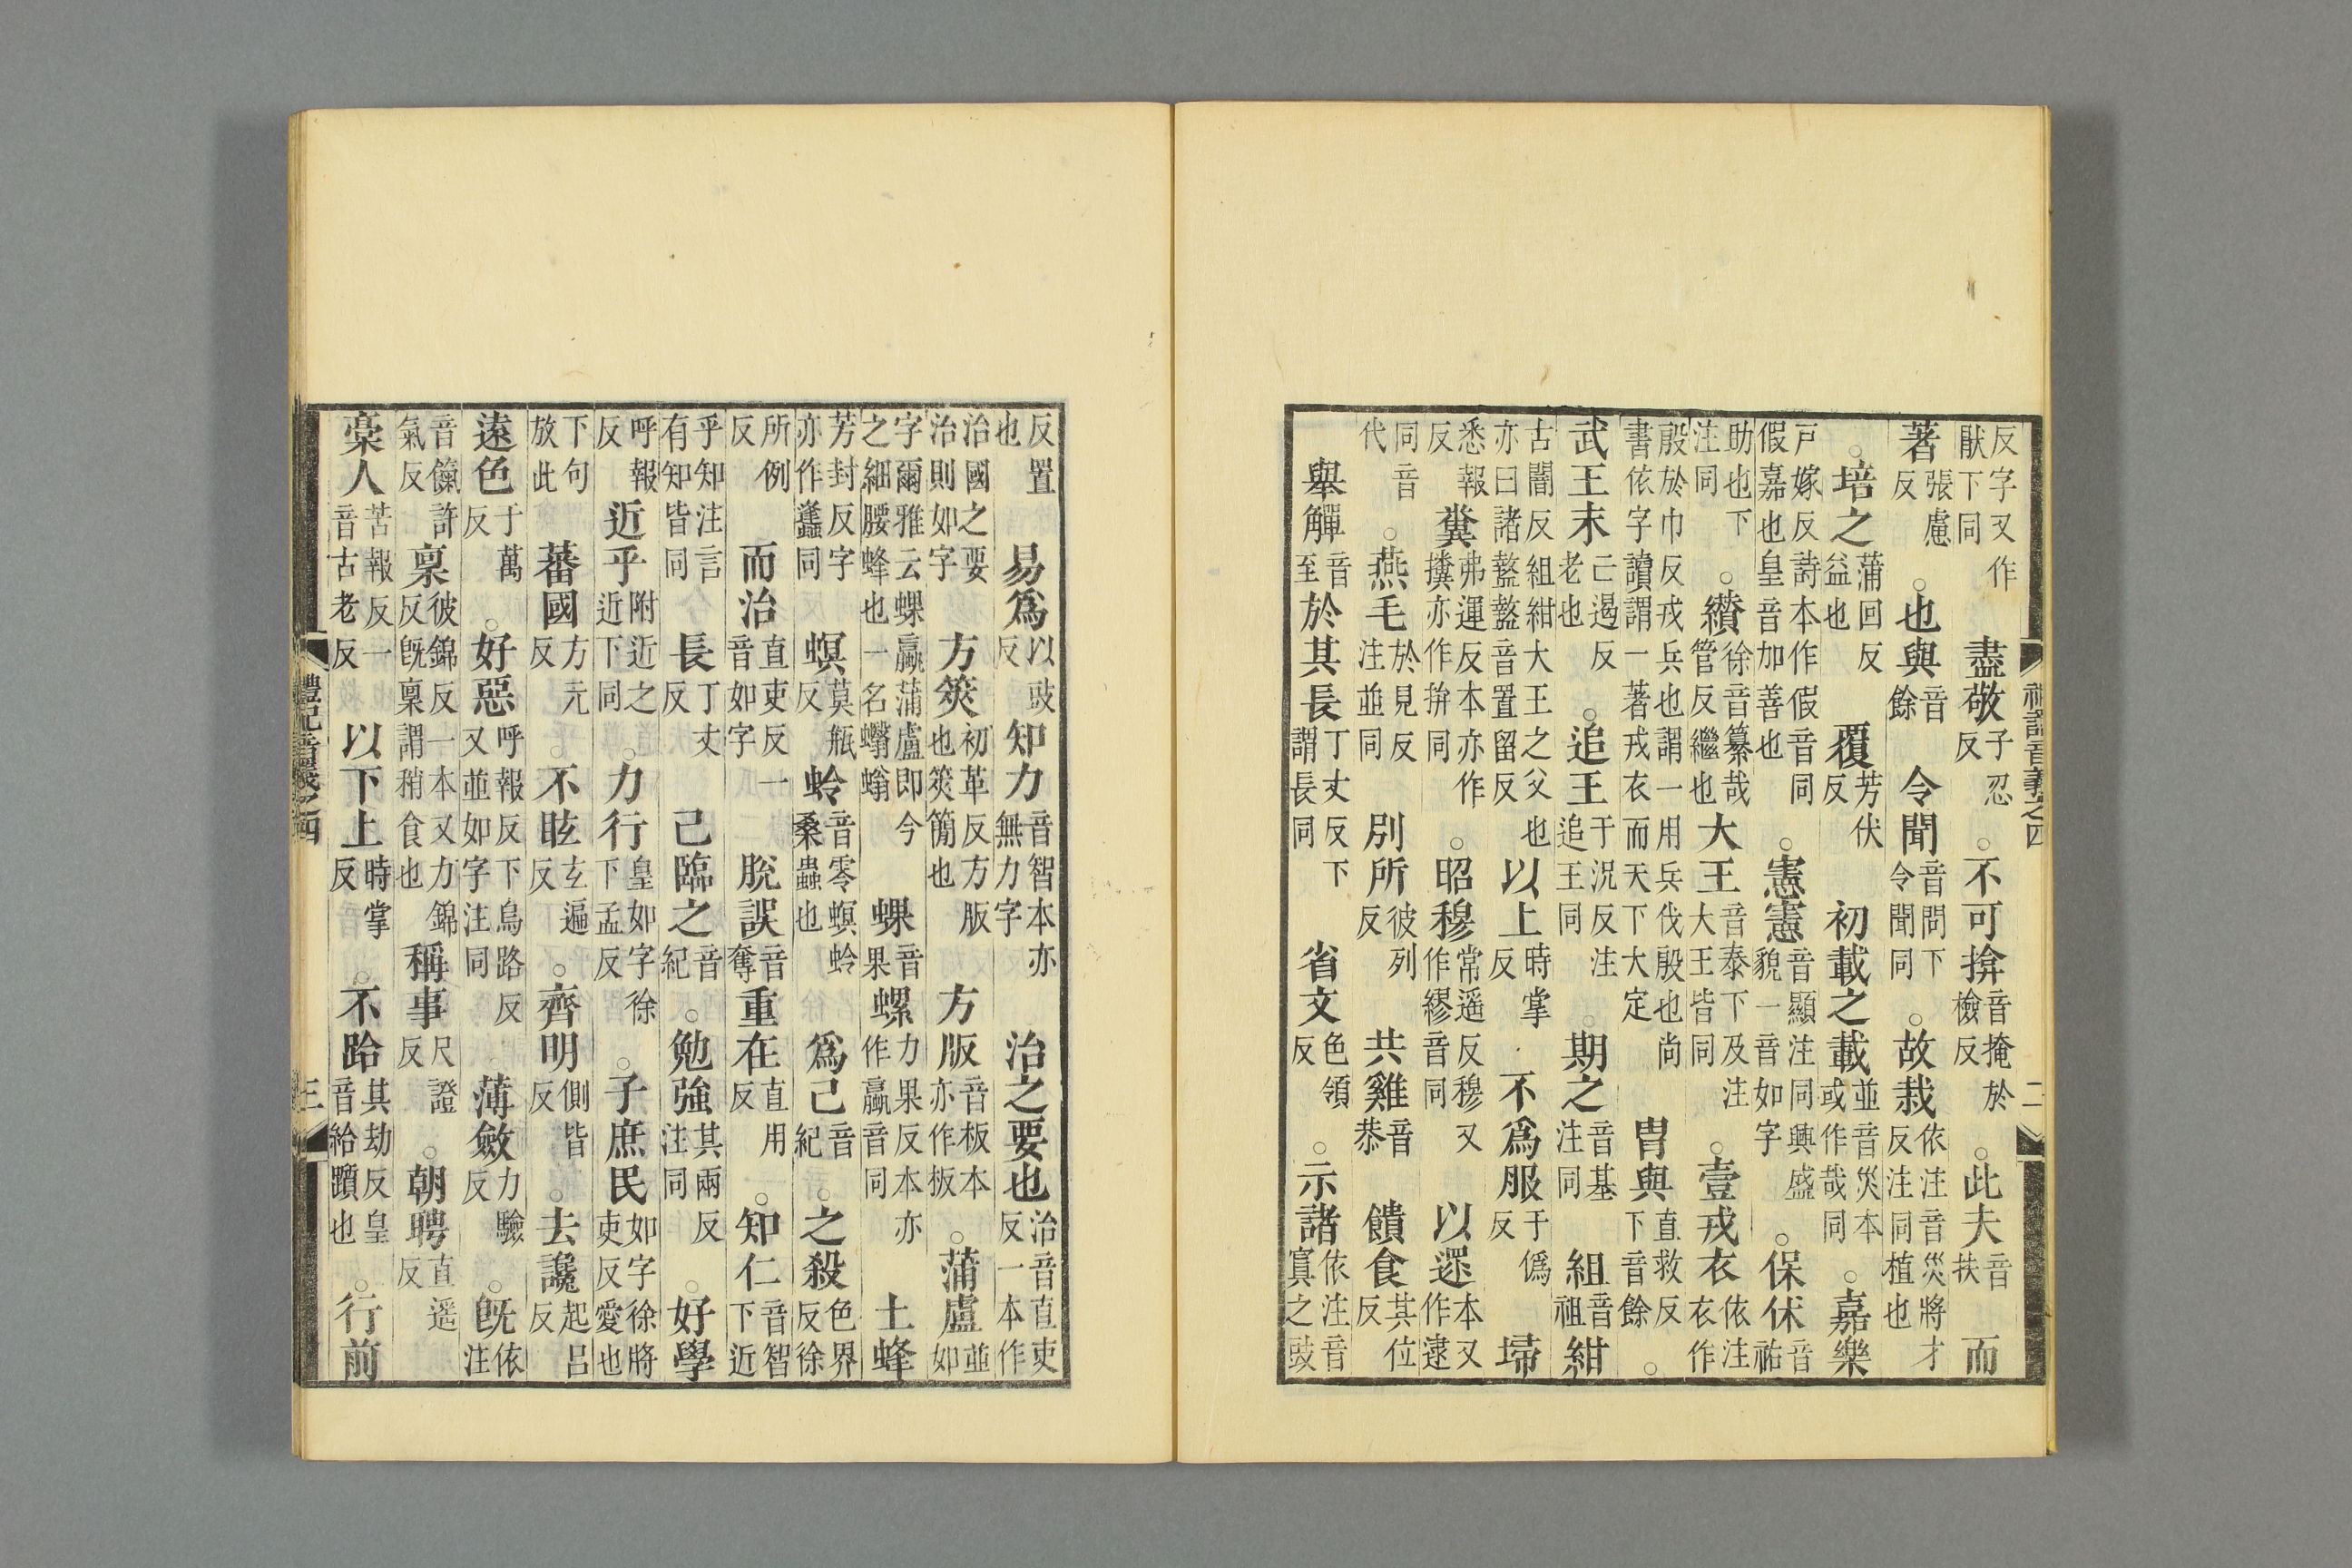 禮記音義之四 二
反字又作猒下同 盡敬子忍反 ○不可揜音掩於檢反 ○此夫音扶 而
著張慮反 ○也與音餘 令聞音問下令聞同 ○故栽依注音災將才反注同植也
○培之蒲回反益也 覆芳伏反 初載之載並音災本或作哉同 ○嘉樂
戸嫁反詩本作假音同假嘉也皇音加善也 ○憲憲音顯注同興盛貌一音如字 ○保佑音祐
助也下注同 ○纘徐音纂哉管反繼也 大王音泰下及注大王皆同 ○壹戎衣依注衣作
殷於巾反戎兵也謂一用兵伐殷也尚書依字讀謂一著戎衣而天下大定 胄與直救反下音餘 ○
武王末亡遏反老也 ○追王于況反注追王同 ○期之音基注同 組音祖紺
古闇反組紺大王之父也亦曰諸盩盩音置留反 以上時掌反 不爲服于僞反 埽
悉報反 糞弗運反本亦作㨷亦作拚同 ○昭穆常遥反穆又作繆音同 以遝本又作逮
同音代 ○燕毛於見反注並同 別所彼列反 共雞音恭 饋食其位反
舉觶音至 於其長丁丈反下謂長同 省文色領反 ○示諸依注音寘之豉
反置也 易爲以豉反 知力音智本亦無力字 治之要也治音直吏反一本作
治國之要治則如字 方筴初革反方版也筴簡也 方版音板本亦作板 ○蒲盧並如
字爾雅云蜾蠃蒲盧即今之細腰蜂也一名蠮螉 蜾音果 螺力果反本亦作蠃音同 土蜂
芳封反字亦作蠭同 螟莫瓶反 蛉音零螟蛉桑蟲也 爲己音紀 ○之殺色界反徐
所例反 而治直吏反一音如字 脫誤音奪 重在直用反 ○知仁音智下近
乎知注言有知皆同 長丁丈反 己臨之音紀 ○勉強其兩反注同 ○好學
呼報反 近乎附近之近下同 ○力行皇如字徐下孟反 ○子庶民如字徐將吏反愛也
下句放此 蕃國方元反 ○不眩玄遍反 ○齊明側皆反 ○去讒起呂反
遠色于萬反 ○好惡呼報反下烏路反又並如字注同 薄斂力驗反 ○旣依注
音餼許氣反 稟彼錦反一本又力錦反旣稟謂稍食也 稱事尺證反 ○朝聘直遥反
槀人苦報反一音古老反 以下上時掌反 ○不跲其劫反皇音給躓也 ○行前
禮記音義之四 三